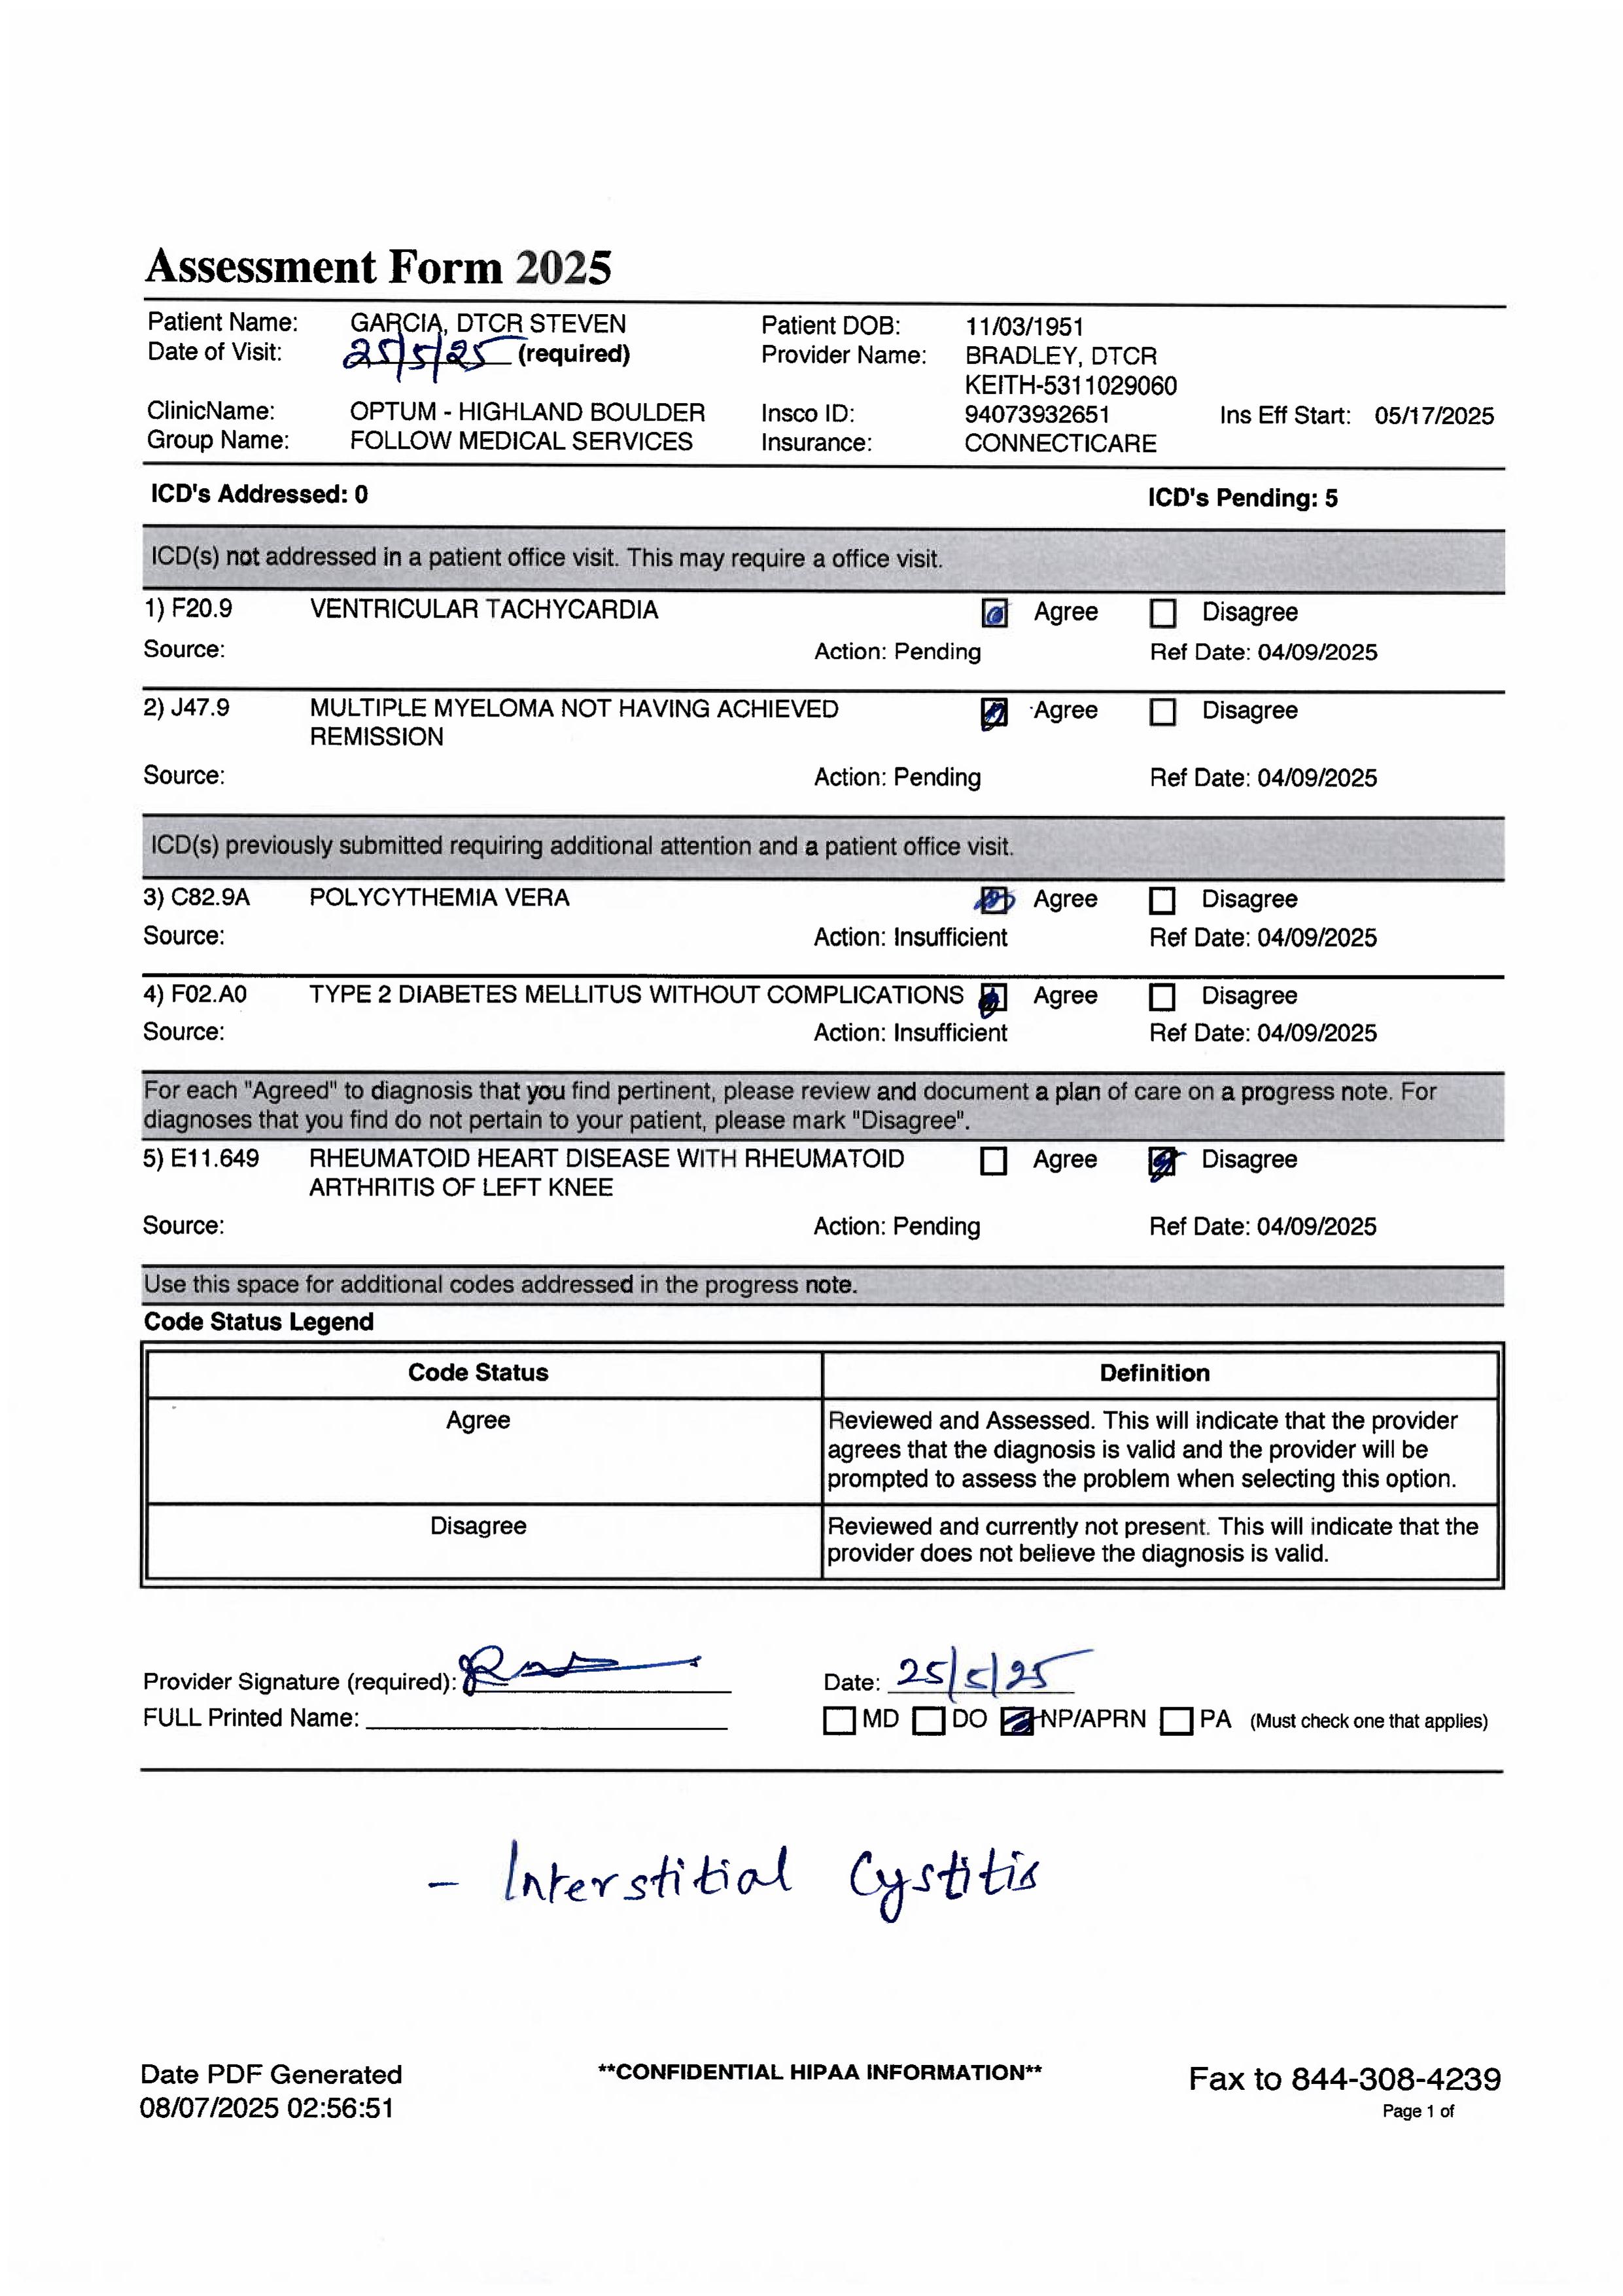 Assessment Form 2025
Patient Name: GARCIA, DTCR STEVEN Patient DOB: 11/03/1951
Date of Visit: 25/5/25 (required) Provider Name: BRADLEY, DTCR
KEITH-5311029060
ClinicName: OPTUM - HIGHLAND BOULDER Insco ID: 94073932651 Ins Eff Start: 05/17/2025
Group Name: FOLLOW MEDICAL SERVICES Insurance: CONNECTICARE
ICD's Addressed: 0 ICD's Pending: 5
ICD(s) not addressed in a patient office visit. This may require a office visit.
1) F20.9 VENTRICULAR TACHYCARDIA Agree Disagree
Source: Action: Pending Ref Date: 04/09/2025
2) J47.9 MULTIPLE MYELOMA NOT HAVING ACHIEVED Agree Disagree
REMISSION
Source: Action: Pending Ref Date: 04/09/2025
ICD(s) previously submitted requiring additional attention and a patient office visit.
3) C82.9A POLYCYTHEMIA VERA Agree Disagree
Source: Action: Insufficient Ref Date: 04/09/2025
4) F02.A0 TYPE 2 DIABETES MELLITUS WITHOUT COMPLICATIONS Agree Disagree
Source: Action: Insufficient Ref Date: 04/09/2025
For each "Agreed" to diagnosis that you find pertinent, please review and document a plan of care on a progress note. For
diagnoses that you find do not pertain to your patient, please mark "Disagree".
5) E11.649 RHEUMATOID HEART DISEASE WITH RHEUMATOID Agree Disagree
ARTHRITIS OF LEFT KNEE
Source: Action: Pending Ref Date: 04/09/2025
Use this space for additional codes addressed in the progress note.
Code Status Legend
Code Status Definition
Agree Reviewed and Assessed. This will indicate that the provider
agrees that the diagnosis is valid and the provider will be
prompted to assess the problem when selecting this option.
Disagree Reviewed and currently not present. This will indicate that the
provider does not believe the diagnosis is valid.
Provider Signature (required): Date: 25/5/25
FULL Printed Name: MD DO NP/APRN PA (Must check one that applies)
- Interstitial Cystitis
Date PDF Generated **CONFIDENTIAL HIPAA INFORMATION** Fax to 844-308-4239
08/07/2025 02:56:51 Page 1 of